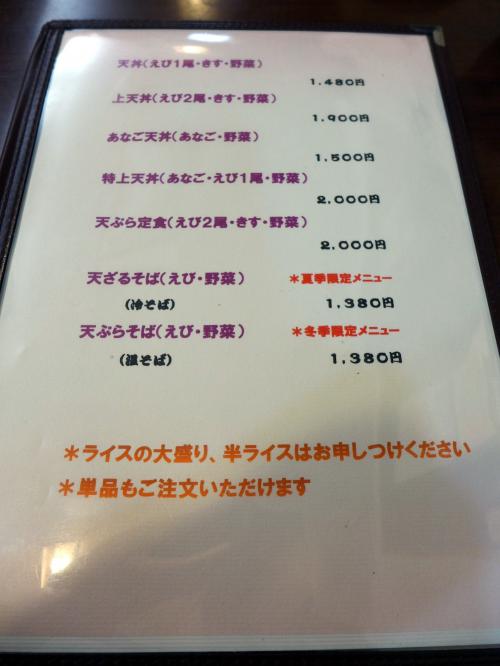 天丼(えび1尾・きす・野菜)
1.480円
上天丼(えび2尾・きす・野菜)
1.900円
あなご天丼(あなご・野菜)
1,500円
特上天丼(あなご・えび1尾・野菜)
2,000円
天ぷら定食(えび2尾・きす・野菜)
2,000円
天ざるそば(えび・野菜) *夏季限定メニュー
(冷そば) 1,380円
天ぷらそば(えび・野菜) *冬季限定メニュー
(温そば) 1,380円
*ライスの大盛り、半ライスはお申しつけください
*単品もご注文いただけます